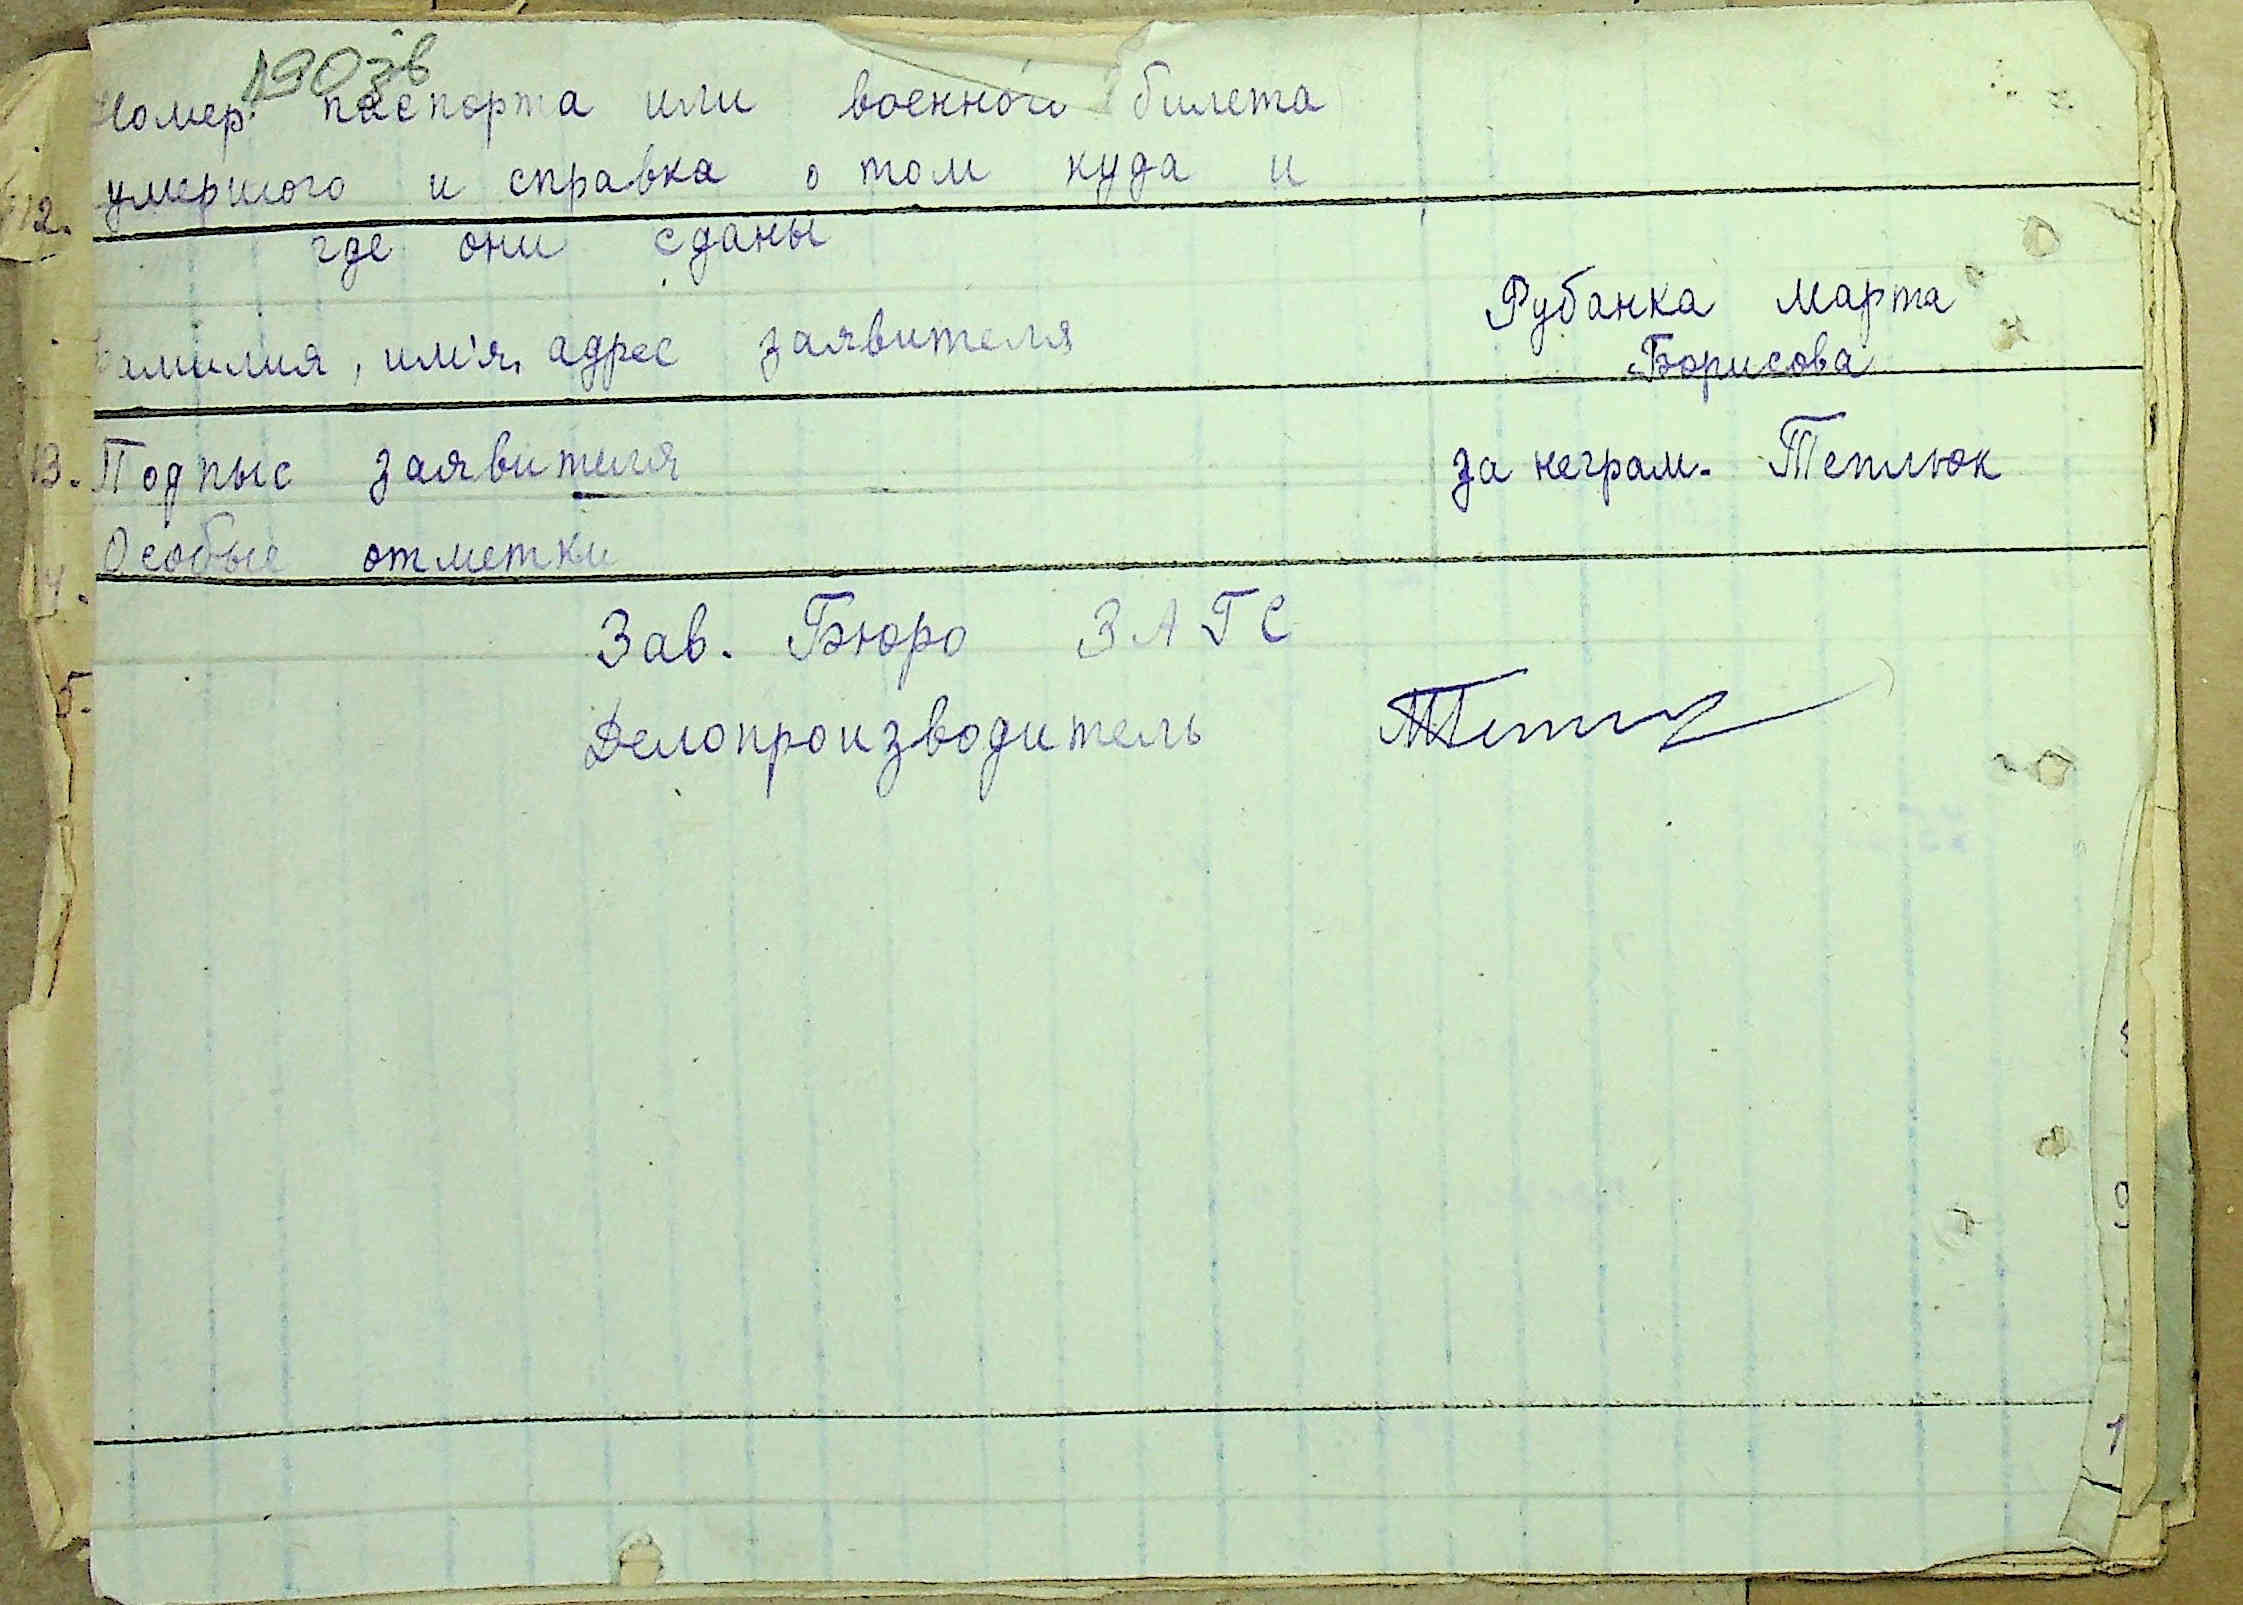 190зв
Номер паспорта или военного билета
12. умершого и справка о том куда и
где они сданы
Фамилия, им'я, адрес заявителя Рубанка Марта
Борисова
13. Подпыс заявителя за неграм. Теплюк
Особые отметки
Зав. Бюро ЗАГС
Делопроизводитель